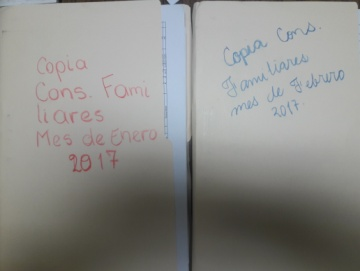 Copia
Cons. Fami
liares
Mes de Enero
2017
Copia Cons.
Familiares
mes de Febrero
2017.